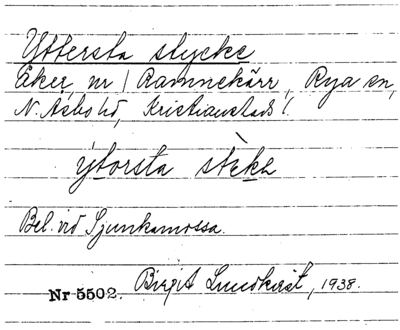 Yttersta stycke
Åker, nr 1 Ramnekärr, Rya sn,
N. Åsbo hd, Kristianstads l.
ýtorsta stèke
Bel. vid Sjunkamossa.
Birgit Lundkvist, 1938.
Nr 5502.